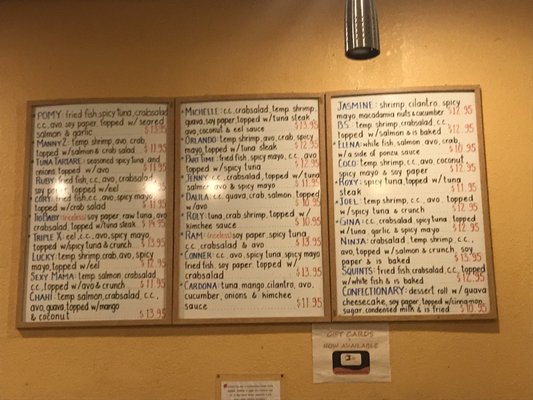 POMY: fried fish, spicy tuna, crabsalad
c.c., avo, soy paper, topped w/ seared
salmon & garlic $13.95
MANNYZ: temp shrimp, avo, crab
topped w/ salmon & crab salad $11.95
TUNA TARTARE: seasoned spicy tuna, and
onions topped w/ avo $11.95
RUBY: fried fish, c.c., avo, crabsalad
soy paper topped w/ eel
CORY: fried fish, c.c., avo, spicy mayo
topped w/ crab salad
TIO BABY: (riceless) soy paper, raw tuna, avo
crabsalad, topped w/ tuna steak
TRIPLE X: eel, c.c., avo, spicy mayo,
topped w/ spicy tuna & crunch $13.95
LUCKY: temp shrimp, crab, avo, spicy
mayo, topped w/ eel $12.95
SEXY MAMA: temp salmon, crabsalad,
c.c., topped w/ avo & crunch $11.95
CHANI: temp salmon, crabsalad, c.c.,
avo, guava, topped w/ mango
& coconut $13.95
MICHELLE: c.c., crabsalad, temp. shrimp,
guava, soy paper, topped w/ tuna steak
avo, coconut & eel sauce $13.95
ORLANDO: temp shrimp, avo, crab, spicy
mayo, topped w/ tuna $12.95
PART TIME: fried fish, spicy mayo, c.c., avo
topped w/ spicy tuna $12.95
JENNY: c.c., crabsalad, topped w/ tuna
salmon, avo & spicy mayo $11.95
DALILA: c.c., guava, crab, salmon, topped
w/ avo $10.95
ROLY: tuna, crab, shrimp, topped w/
kimchee sauce $10.95
RAM: (riceless) soy paper, spicy tuna,
c.c., crabsalad & avo $13.95
CONNER: c.c., avo, spicy tuna, spicy mayo
fried fish, soy paper, topped w/
crabsalad $13.95
CARDONA: tuna, mango, cilantro, avo,
cucumber, onions & kimchee
sauce $11.95
JASMINE: shrimp, cilantro, spicy
mayo, macadamia nuts & cucumber $12.95
B.S.: temp. shrimp, crabsalad, c.c.,
topped w/ salmon & is baked $12.95
ELENA: white fish, salmon, avo, crab,
w/ a side of ponzu sauce $10.95
COCO: temp shrimp, c.c., avo, coconut
spicy mayo & soy paper $12.95
ROXY: spicy tuna, topped w/ tuna
steak $11.95
JOEL: temp shrimp, c.c., avo, topped
w/ spicy tuna & crunch $12.95
GINA: c.c., crabsalad, spicy tuna, topped
w/ tuna, garlic & spicy mayo $12.95
NINJA: crabsalad, temp. shrimp, c.c.,
avo, topped w/ salmon & crunch, soy
paper & is baked $13.95
SQUINTS: fried fish, crabsalad, c.c., topped
w/ white fish & is baked $12.95
CONFECTIONARY: dessert roll w/ guava
cheesecake, soy paper, topped w/ cinnamon
sugar, condensed milk & is fried $10.95
GIFT CARDS
NOW AVAILABLE